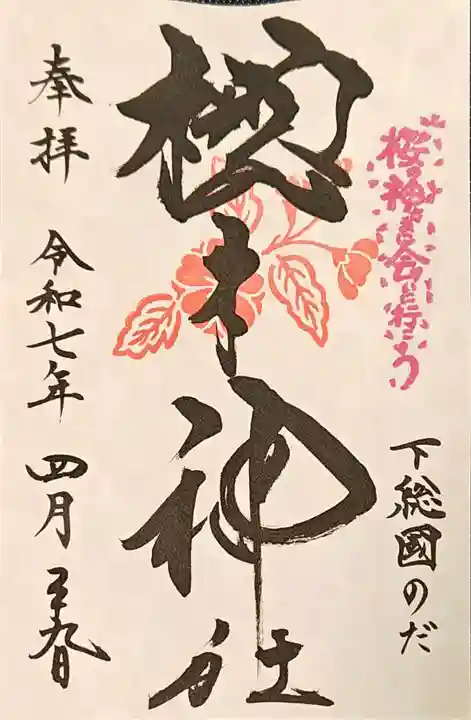 桜の神さまに会いに行こう
下総國のだ
櫻木神社
奉拝 令和七年 四月